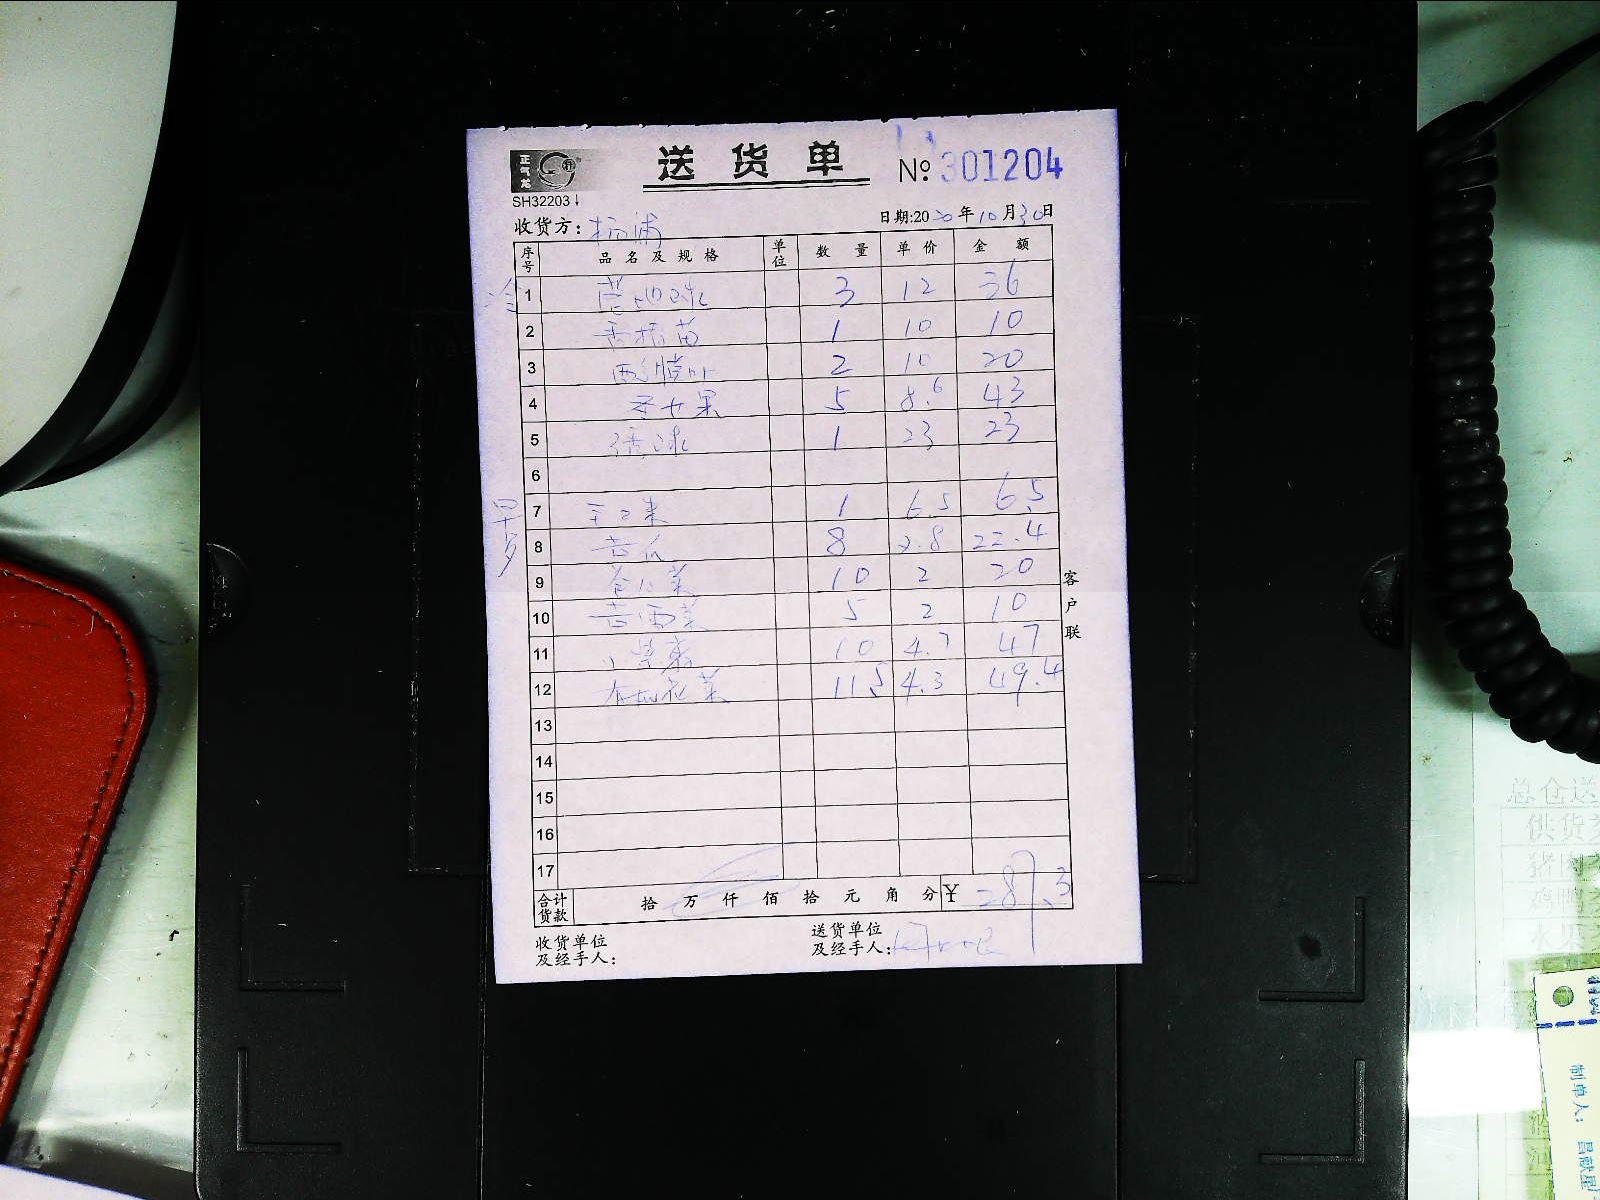 正气龙
送货单
№ 301204
SH32203
收货方：杨浦
日期:2020年10月30日
序号 品名及规格 单位 数量 单价 金额
冷
1 3 12 36
2 香椿苗 1 10 10
3 酸膜叶 2 10 20
4 圣女果 5 8.6 43
5 1 23 23
6
早多
7 玉米 1 6.5 6.5
8 吉瓜 8 2.8 22.4
9 10 2 20
10 5 2 10
11 10 4.7 47
12 有机花菜 11.5 4.3 49.4
13
14
15
16
17
合计货款 拾 万 仟 佰 拾 元 角 分 ¥ 287.3
客户联
收货单位及经手人：
送货单位及经手人：
总仓送
供货
猪肉
鸡鸭
制单人：